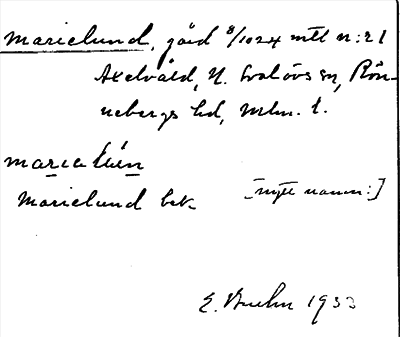 Marielund, gård 8/1024 mtl n:21
Axelvåld, N. Svalövs sn, Rön-
nebergs hd, Mlm. l.
maria lún
Marielund bek. [nytt namn:]
E. 1933